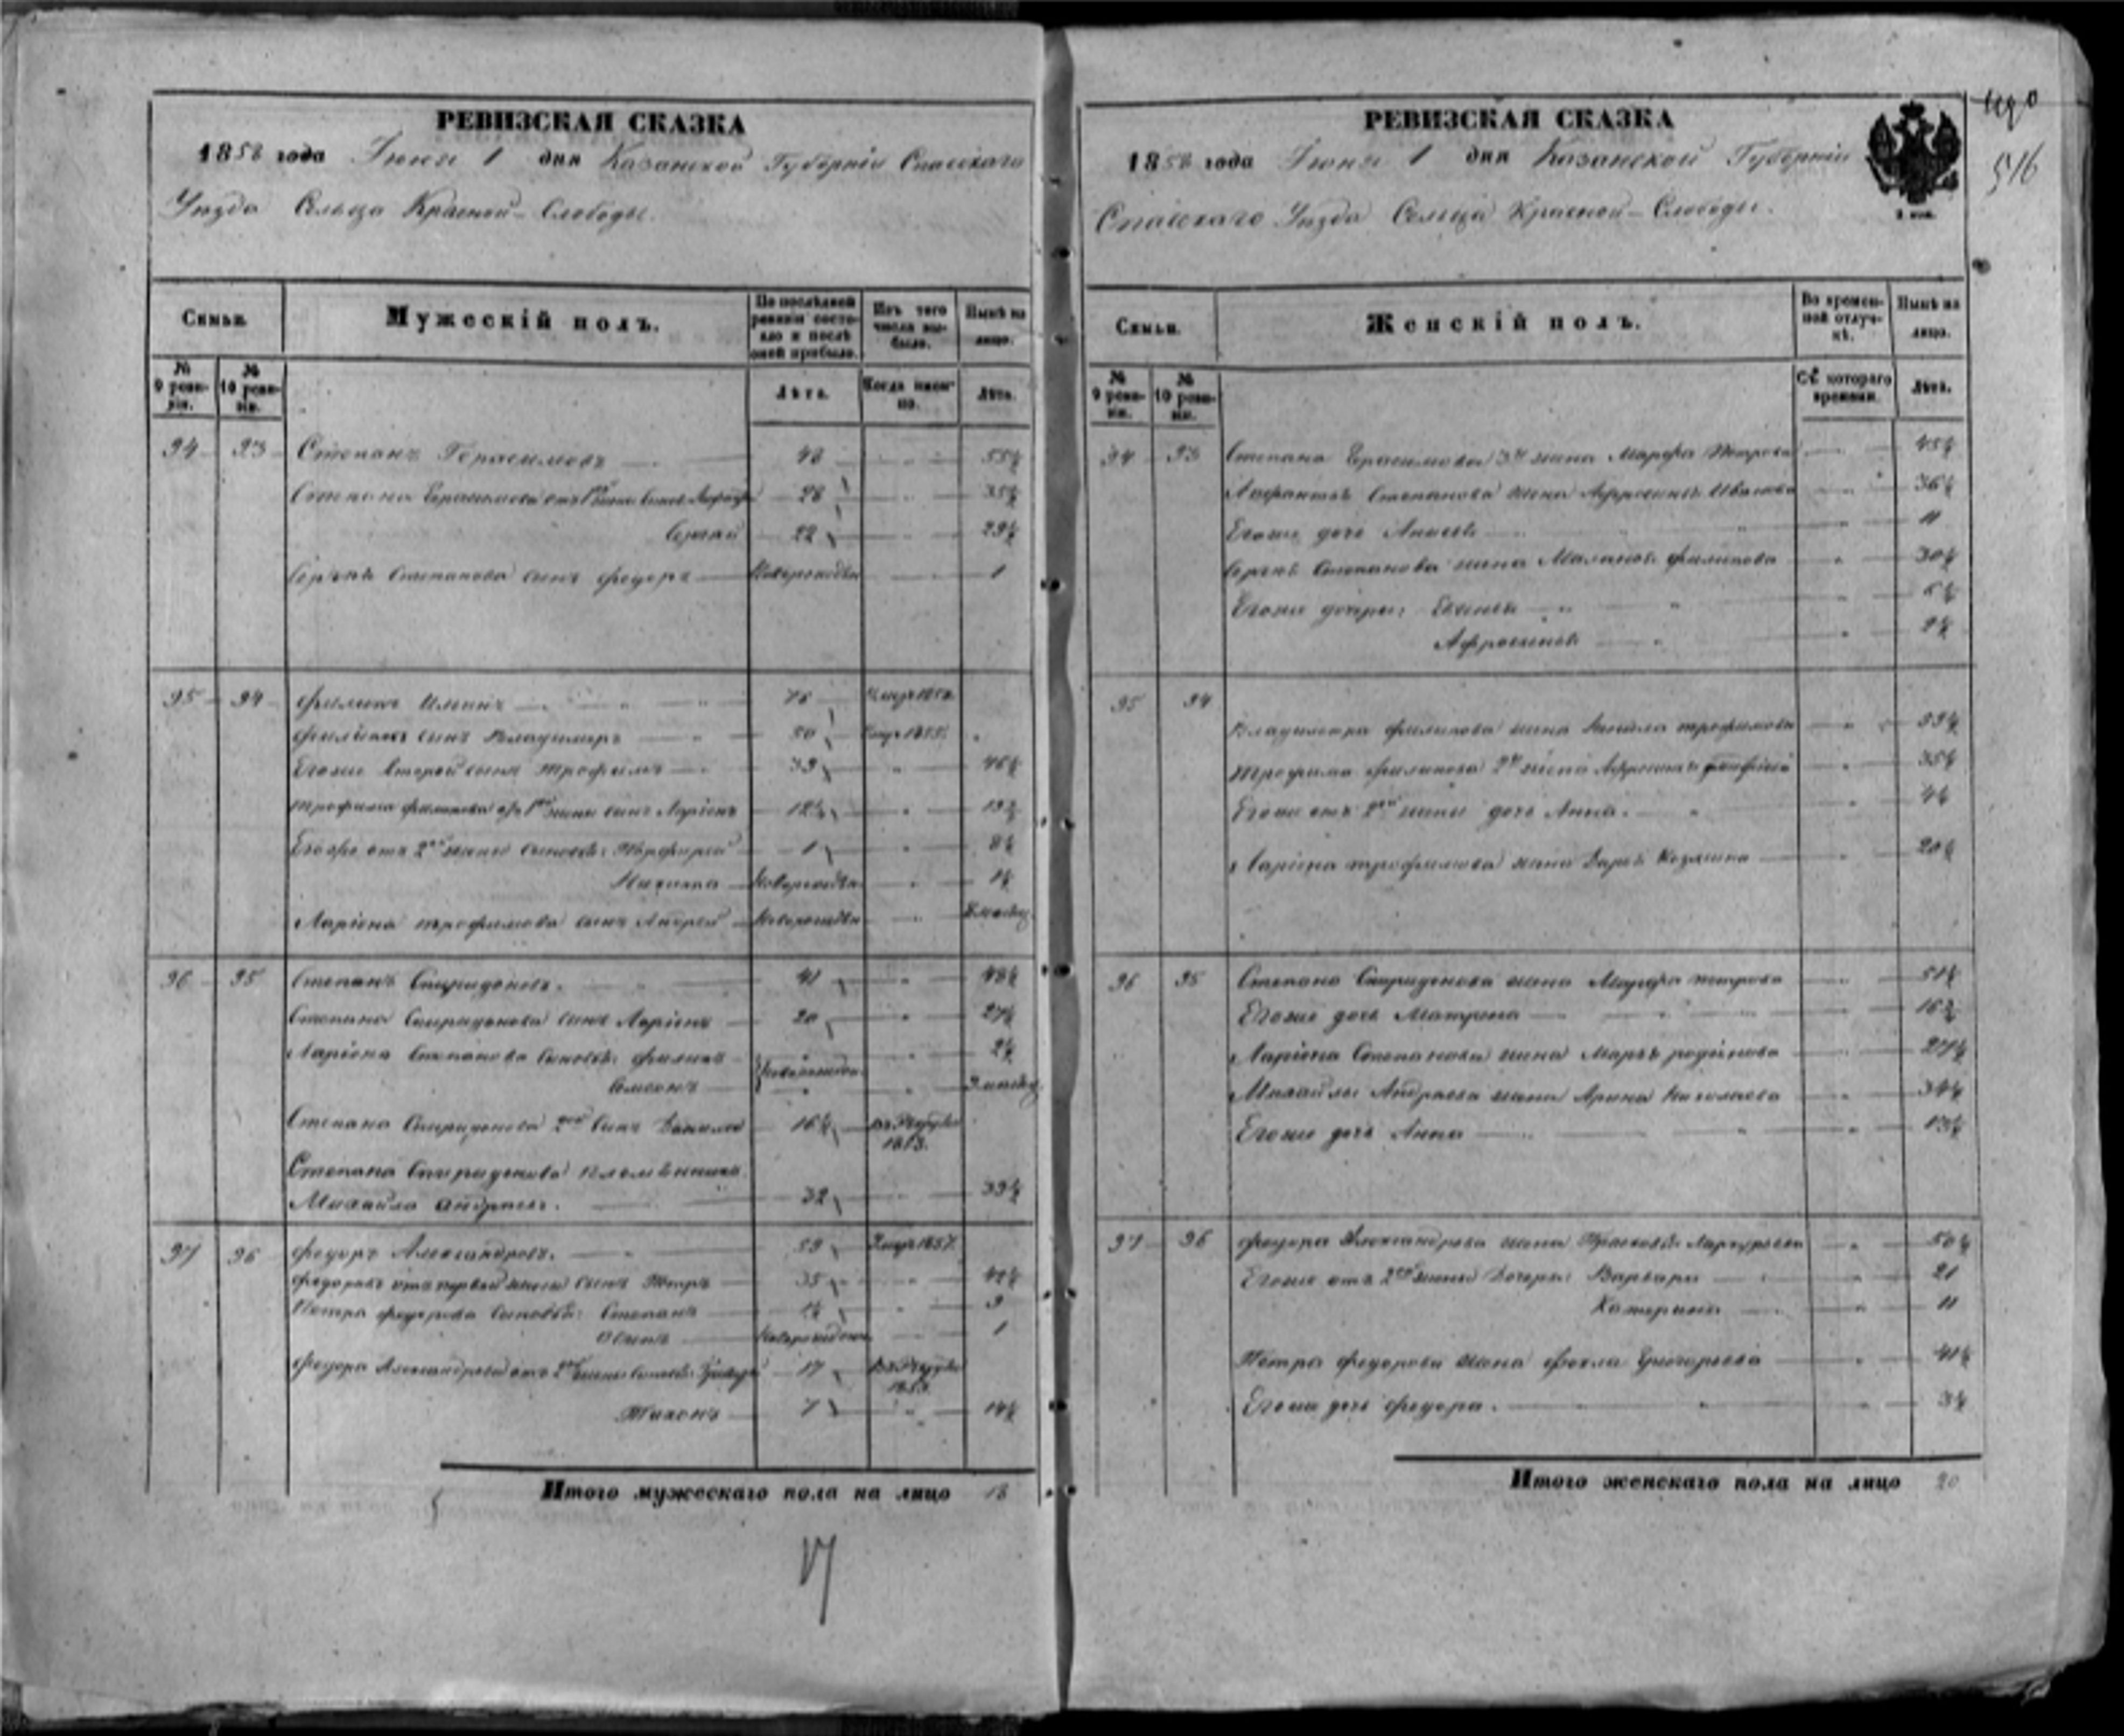 РЕВИЗСКАЯ СКАЗКА
1858 года Іюня 1 дня Казанской Губерніи Спасскаго
Уѣзда Сельца Красной-Слободы.
Семьи.
Мужескій полъ.
По послѣдней ревизіи состояло и послѣ оной прибыло.
Изъ того числа выбыло.
Нынѣ на лицо.
№ 9 ревизіи.
№ 10 ревизіи.
Лѣта.
Когда именно.
Лѣта.
94 93 Степанъ Герасимовъ 48 55½
Степана Герасимова отъ 1й жены 28 35½
Сергѣй 22 29½
Сергѣя Степанова сынъ Федоръ Новорожденъ 1
95 94 Филипъ Ильинъ 76
Филипа сынъ Владимиръ 50
Егоже второй сынъ Трофимъ 39 46½
Трофима Филипова отъ 1й жены сынъ Ларіонъ 12½ 19½
Егоже отъ 2й жены сыновья: Порфирей 1 8½
Новорожденъ 1½
Ларіона Трофимова сынъ Андрей Новорожденъ
96 95 Степанъ Спиридоновъ. 41 48½
Степана Спиридонова сынъ Ларіонъ 20 27½
Ларіона Степанова сыновья: Филипъ 2½
Новорождены
Степана Спиридонова 2й сынъ Данила 16½ въ Рекруты 1853.
Степана Спиридонова племянникъ
Михайла Андреевъ. 32 39½
97 96 Федоръ Александровъ. 59 1857
Федоровъ отъ первой жены сынъ Петръ 35 42½
Петра Федорова сыновья: Степанъ 1½ 9
Осипъ Новорожденъ 1
Федора Александрова отъ 2й жены сыновья: 17 Въ Рекруты
Тихонъ 7 14½
Итого мужескаго пола на лицо 18
17
РЕВИЗСКАЯ СКАЗКА
1858 года Іюня 1 дня Казанской Губерніи
Спасскаго Уѣзда Сельца Красной-Слободы.
516
Семьи.
Женскій полъ.
Во временной отлучкѣ.
Нынѣ на лицо.
№ 9 ревизіи.
№ 10 ревизіи.
Съ котораго времени.
Лѣта.
94 93 Степана Герасимова 3я жена Марфа Петрова 45½
Степанова жена Афросинья Иванова 36½
Егоже дочь 11
Сергѣя Степанова жена Маланья Филипова 30½
Егоже дочери: 6½
Афросинья 2½
95 94
Владимира Филипова жена Трофимова
Трофима Филипова 2я жена Афросинья 35½
Егоже отъ 2й жены дочь Анна. 4½
Ларіона Трофимова жена Дарья Козмина 20½
96 95 Степана Спиридонова жена Марфа Петрова 51½
Егоже дочь Матрена 16½
Ларіона Степанова жена Марья Родионова 27½
Михайлы Андреева жена Арина Николаева 34½
Егоже дочь Анна 13½
97 96 Федора Александрова жена Прасковья 50½
Егоже отъ 2й жены дочери: Варвара 21
Катерина 11
Петра Федорова жена Фекла Григорьева 41½
Егоже дочь Федора. 3½
Итого женскаго пола на лицо 20